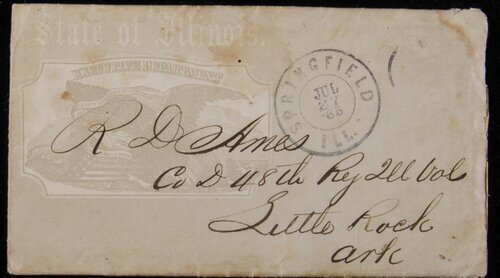 State of Illinois.
EXECUTIVE DEPARTMENT
SPRINGFIELD ILL.
JUL
27
R D Ames
Co D 48th Reg Ill Vol
Little Rock
Ark